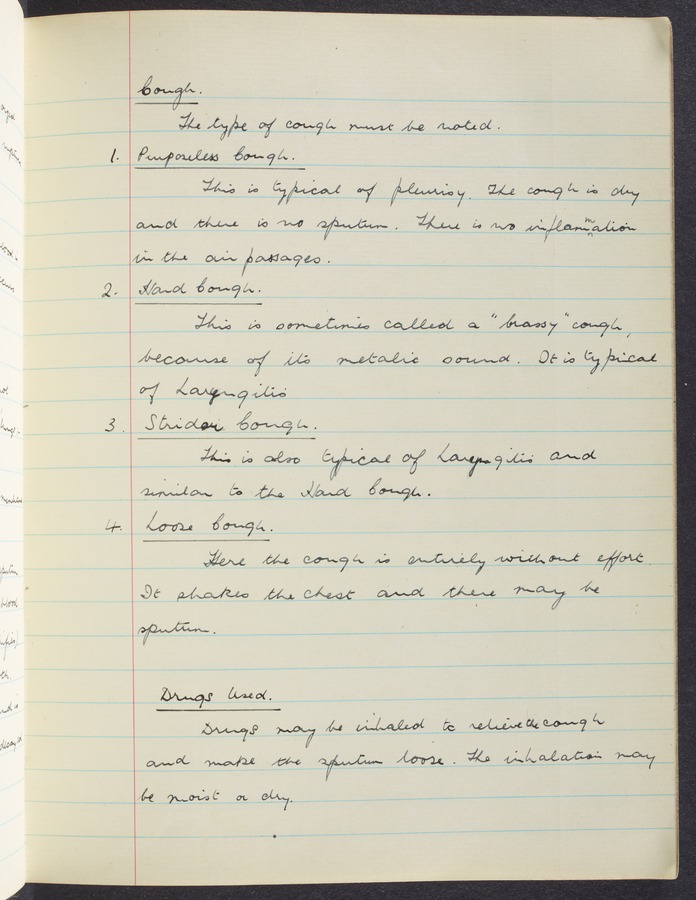 Cough.
The type of cough must be noted.
1. Purposeless Cough.
This is typical of pleurisy. The cough is dry
and there is no sputum. There is no inflammation
in the air passages.
2. Hard Cough.
This is sometimes called a "brassy" cough,
because of its metalic sound. It is typical
of Laryngitis
3. Stridor Cough.
This is also typical of Laryngitis and
similar to the Hard Cough.
4. Loose Cough.
Here the cough is entirely without effort.
It shakes the chest and there may be
sputum.
Drugs Used.
Drugs may be inhaled to relieve the cough
and make the sputum loose. The inhalation may
be moist or dry.